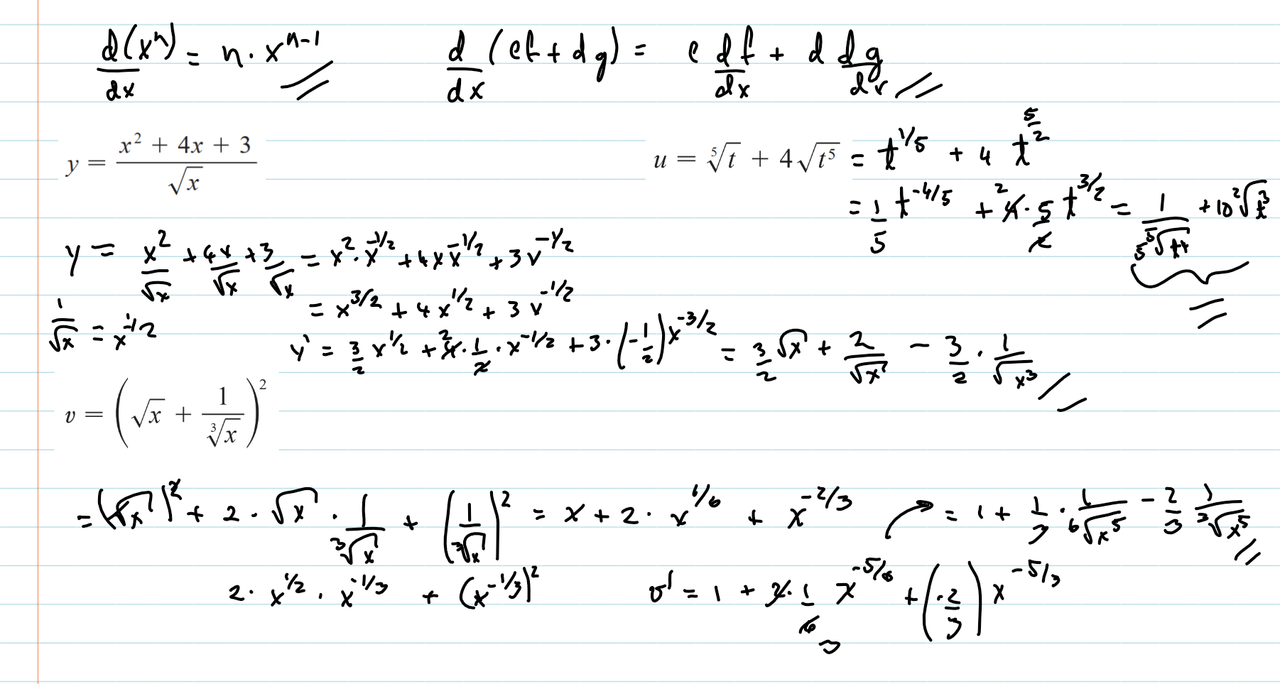 d(xⁿ)/dx = n · xⁿ⁻¹    d/dx (cf + dg) = c df/dx + d dg/dx
y = (x² + 4x + 3)/√x    u = ⁵√t + 4√t⁵ = t^(1/5) + 4 t^(5/2)
= 1/5 t^(-4/5) + 4 · 5/2 t^(3/2) = 1/(5 ⁵√t⁴) + 10 ²√t³
y = x²/√x + 4x/√x + 3/√x = x² · x^(-1/2) + 4x x^(-1/2) + 3x^(-1/2)
1/√x = x^(-1/2)    = x^(3/2) + 4x^(1/2) + 3x^(-1/2)
y' = 3/2 x^(1/2) + 4 · 1/2 · x^(-1/2) + 3 · (-1/2) x^(-3/2) = 3/2 √x + 2/√x − 3/2 · 1/√x³
v = (√x + 1/³√x)²
= (√x)² + 2 · √x · 1/³√x + (1/³√x)² = x + 2 · x^(1/6) + x^(-2/3)    = 1 + 1/3 · 1/⁶√x⁵ − 2/3 1/³√x⁵
2 · x^(1/2) · x^(-1/3) + (x^(-1/3))²    v' = 1 + 2 · 1/6 x^(-5/6) + (-2/3) x^(-5/3)